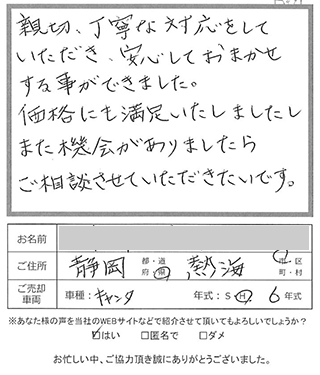 親切、丁寧な対応をして
いただき、安心しておまかせ
する事ができました。
価格にも満足いたしましたし
また機会がありましたら
ご相談させていただきたいです。
お名前
ご住所 静岡 都・道 府・県 熱海 市・区 町・村
ご売却車両 車種：キャンタ 年式：S H 6年式
※あなた様の声を当社のWEBサイトなどで紹介させて頂いてもよろしいでしょうか？
☑はい □匿名で □ダメ
お忙しい中、ご協力頂き誠にありがとうございました。